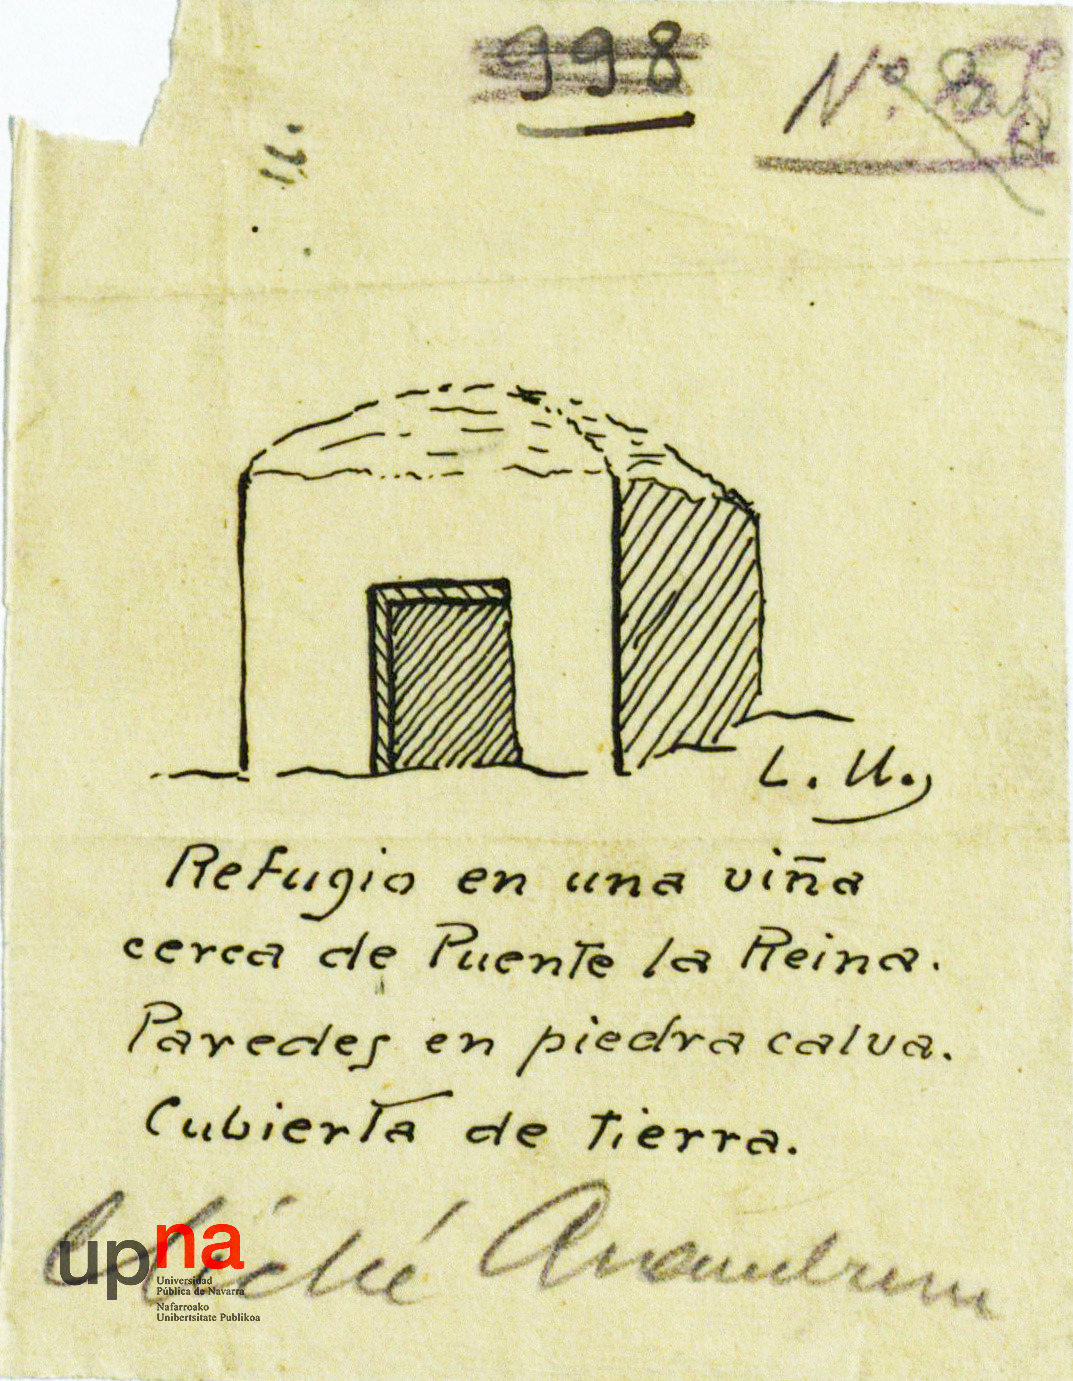 998
Nº.
L. U.
Refugio en una viña
cerca de Puente la Reina.
Paredes en piedra calva.
Cubierta de tierra.
Cliché
upna
Universidad
Pública de Navarra
Nafarroako
Unibertsitate Publikoa